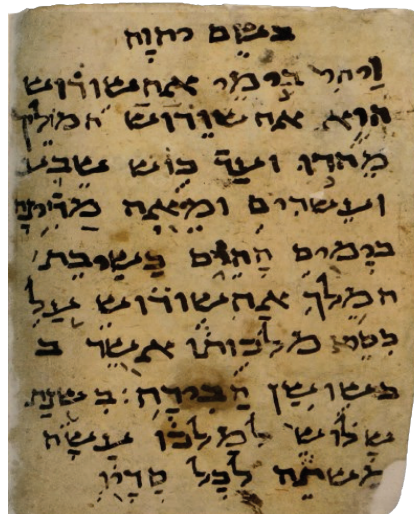 בשם יהוה
ויהי בימי אחשורוש
הוא אחשורוש המלך
מהדו ועד כוש שבע
ועשרים ומאה מדינה
בימים ההם
המלך אחשורוש על
כסא מלכותו אשר ב
בשושן הבירה: בשנת
שלוש למלכו עשה
משתה לכל